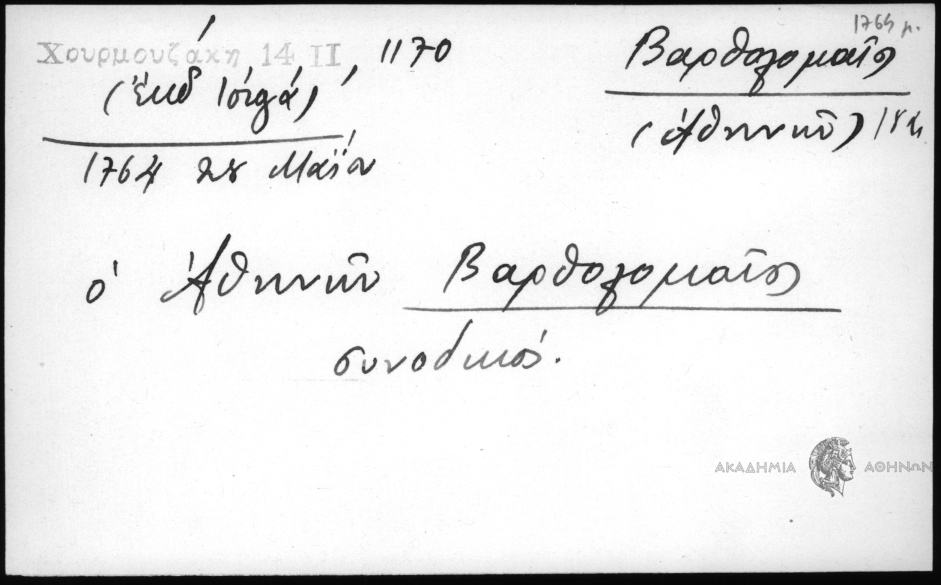 1764 μ.
Χουρμουζάκη 14 II, 1170
Βαρθολομαῖος
(Ἔκδ Ἰόργα)
(Ἀθηνῶν) 18
1764 28 Μαΐου
ὁ Ἀθηνῶν Βαρθολομαῖος
συνοδικός.
ΑΚΑΔΗΜΙΑ ΑΘΗΝΩΝ